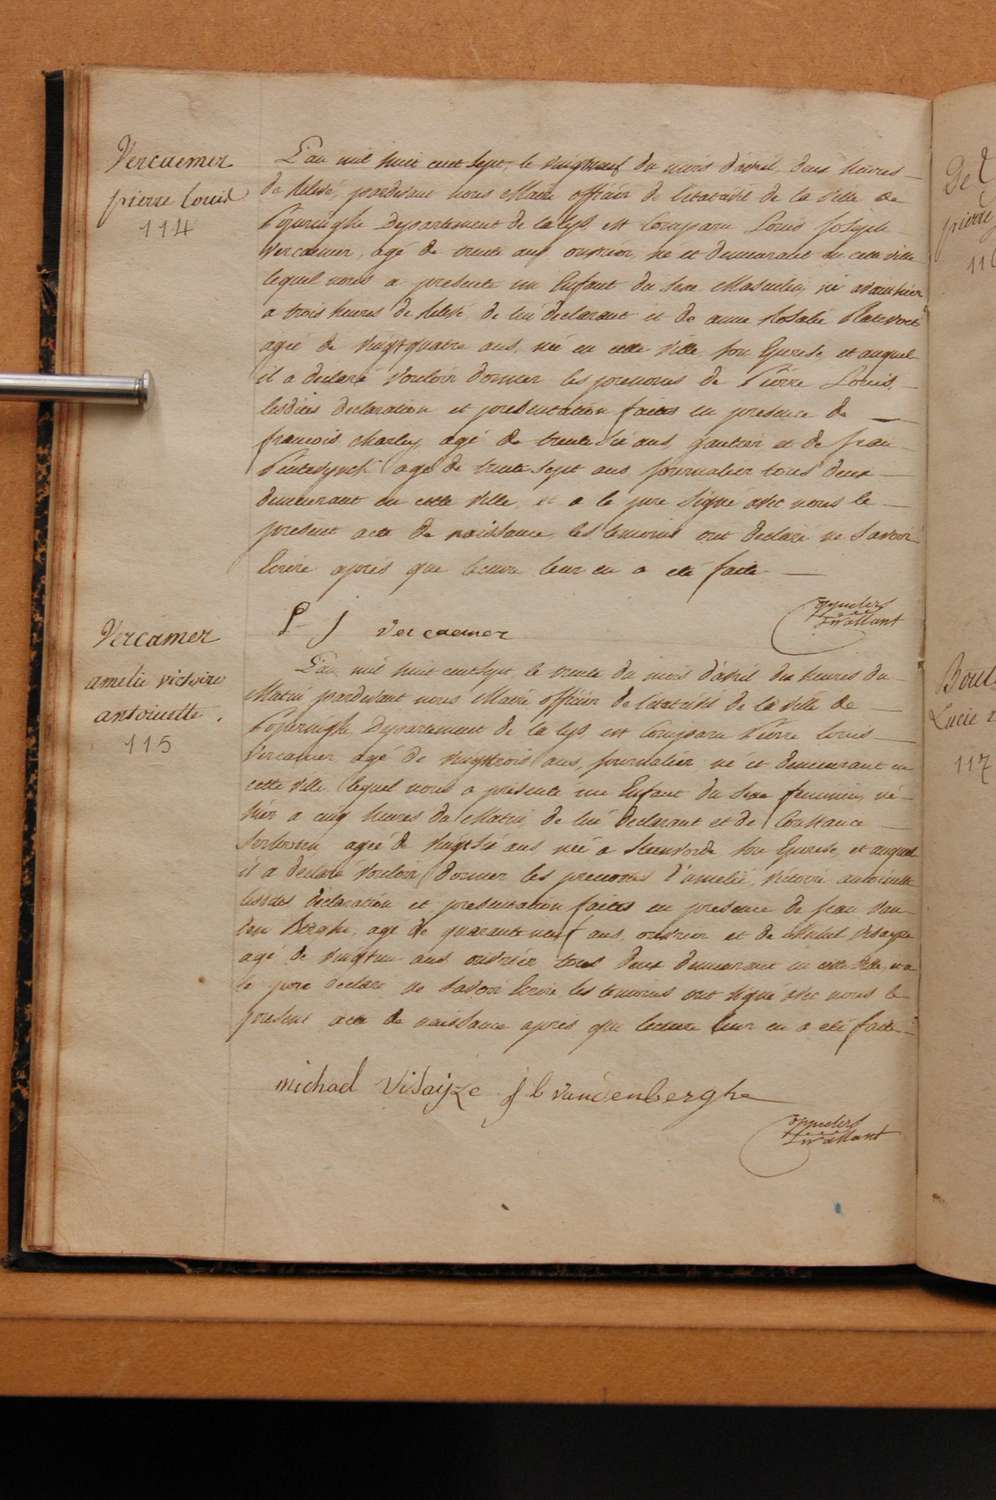 Vercaemer
pierre Louis
114
L'an mil huit cent sept, le vingtneuf du mois d'avril, deux heures
de relevé, pardevant nous Maire officier de l'etatcivil de la ville de
Poperinghe Departement de la Lys, est comparu Louis Joseph
Vercaemer, agé de trente ans ouvrier, né et demeurant en cette ville
lequel nous a presenté un Enfant du sexe Masculin, né avanthier
a trois heures de relevé, de lui declarant et de anne Rosalie
agée de vingtquatre ans, née en cette ville son Epouse, et auquel
il a declaré vouloir donner les prenoms de Pierre Louis,
lesdites declaration et presentation faites en presence de
francois charley agé de trente six ans et de jean
agé de trente sept ans journalier tous deux
demeurant en cette ville, et a le pere signé avec nous le
present acte de naissance, les temoins ont declaré ne savoir
Ecrire après que lecture leur en a eté faite
P J Vercaemer
Vercamer
amelie victoire
antoinette.
115
L'an mil huit centsept le trente du mois d'avril dix heures du
Matin pardevant nous Maire officier de l'etatcivil de la ville de
Poperinghe Departement de la Lys est comparu Pierre Louis
Vercamer agé de vingttrois ans, journalier né et demeurant en
cette ville lequel nous a presenté un Enfant du sexe feminin, né
hier a cinq heures du Matin, de lui declarant et de Constance
agée de vingtsix ans née a Steenvorde son Epouse, et auquel
il a declaré vouloir donner les prenoms d'amelie, victoire antoinette
lesdites declaration et presentation faites en presence de jean van
den Berghe, agé de quarante neuf ans, ouvrier et de Michel Visayze
agé de vingtun ans ouvrier tous deux demeurant en cette ville, et a
le pere declaré ne savoir Ecrire les temoins ont signé avec nous le
present acte de naissance après que lecture leur en a eté faite
michael Visaijze j b vandenberghe
pierre
Lucie
117